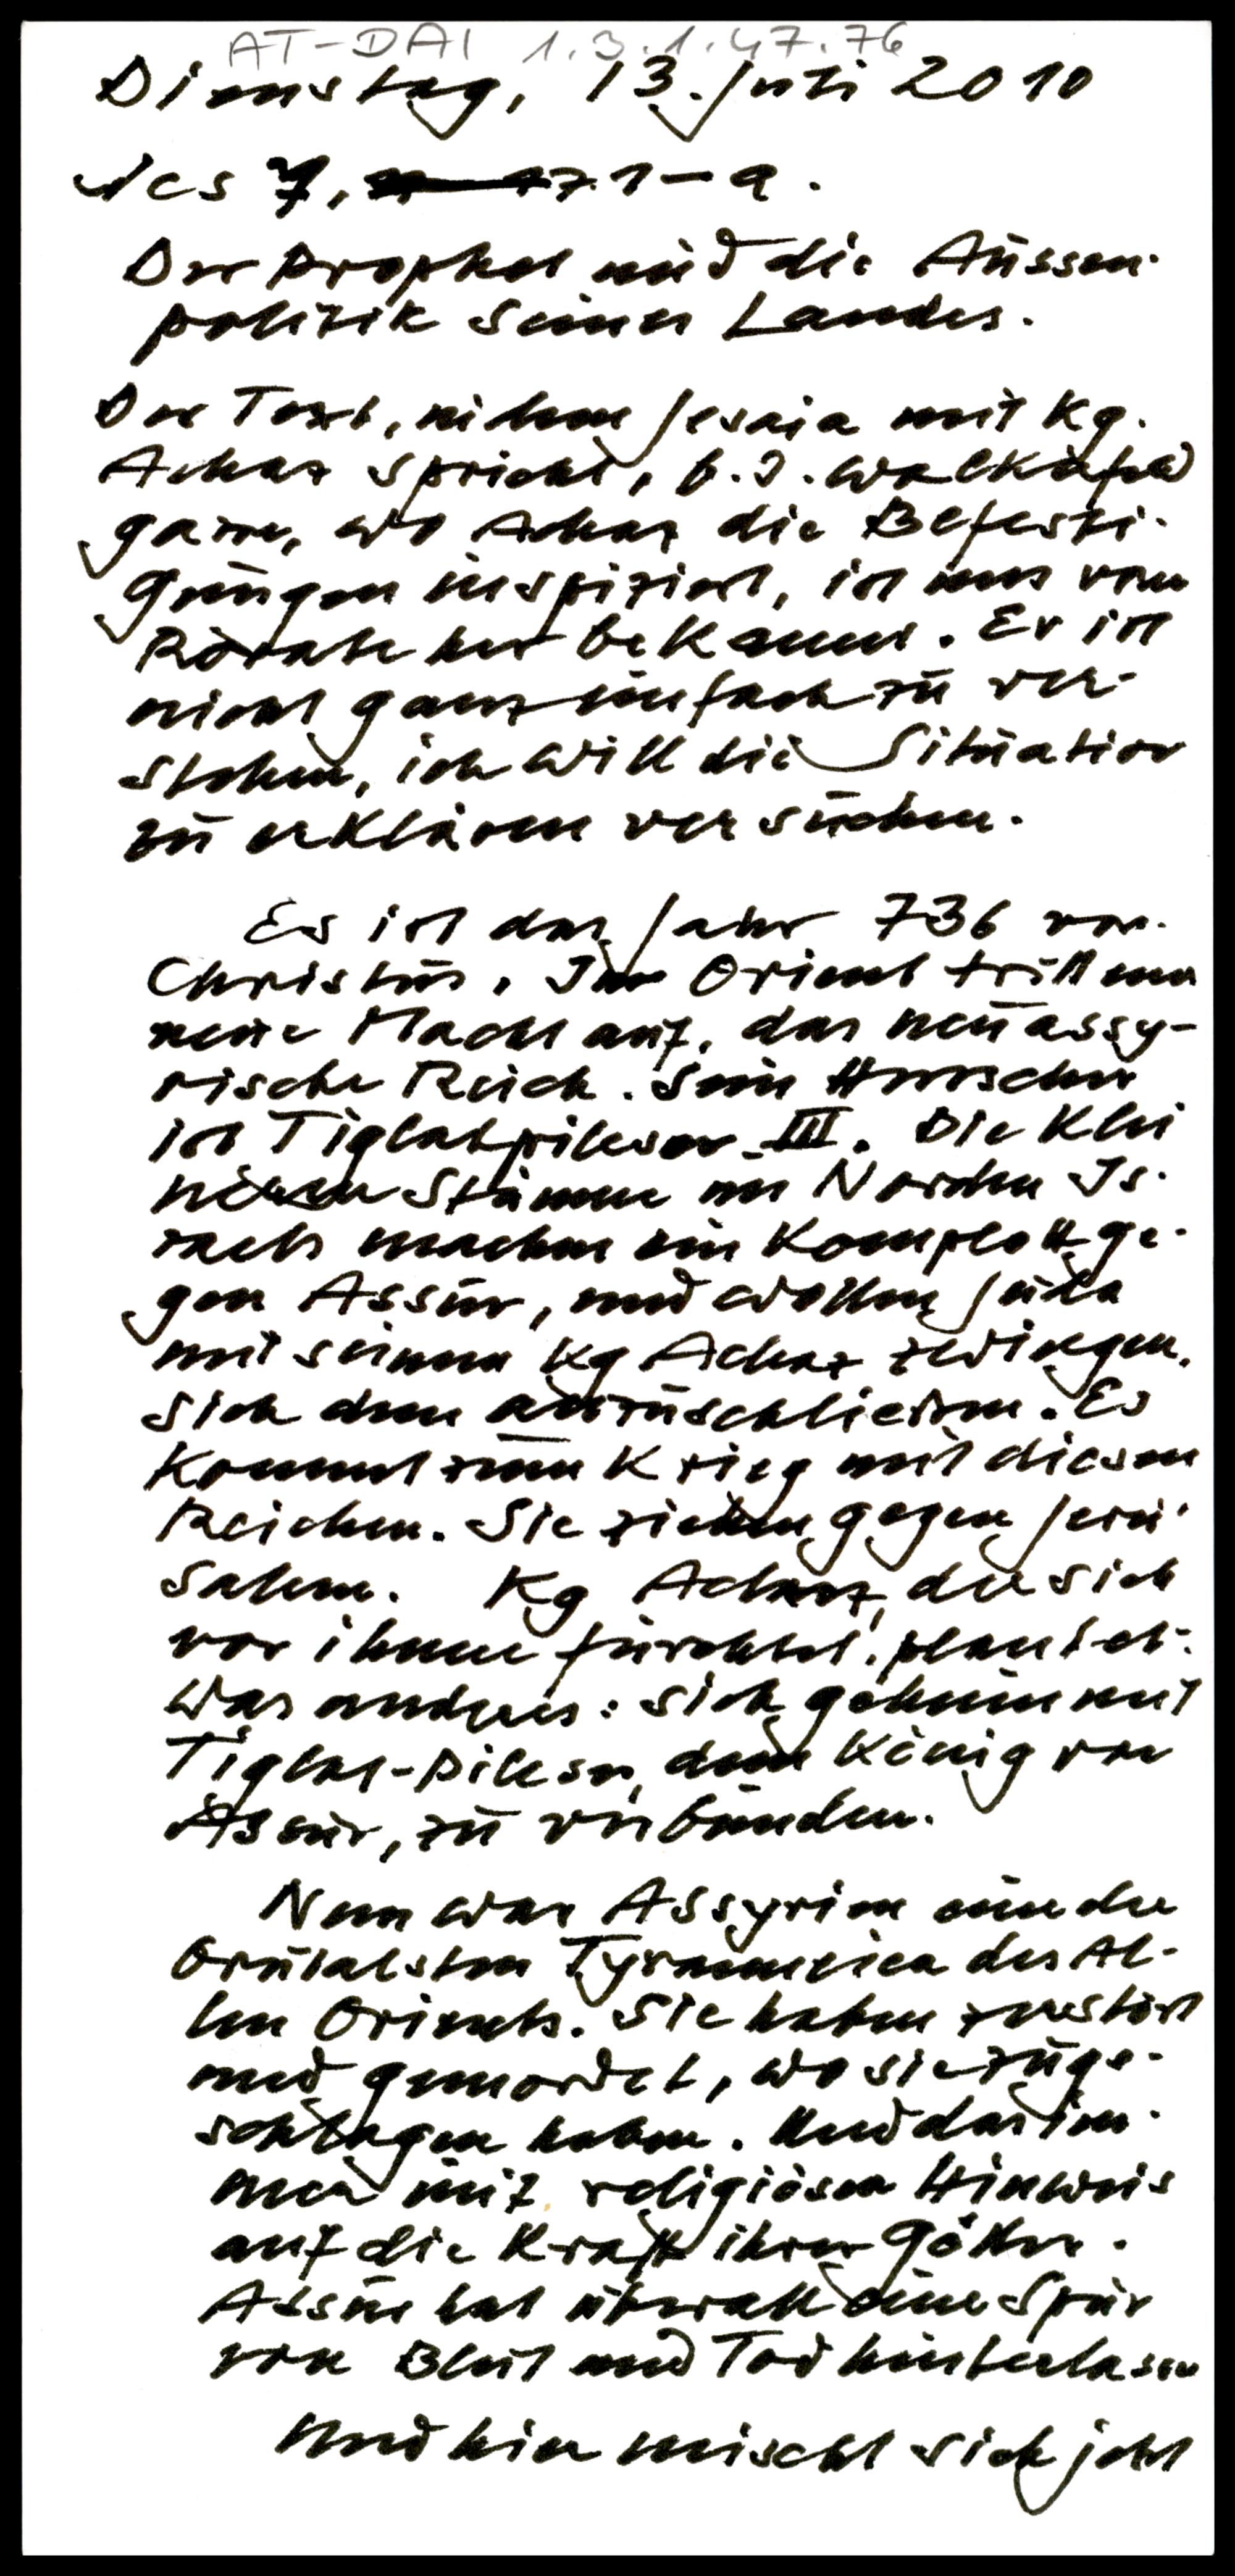 AT-DAI 1.3.1.47.76
Dienstag, 13. Juli 2010
Jes 7, 1-9.
Der Prophet und die Aussen-
politik seines Landes.
Der Text, in dem Jesaia mit Kg.
Achaz spricht, b. d. Walkerfeld
gasse, wo Achaz die Befesti-
gungen inspiziert, ist uns vom
Rorate her bekannt. Er ist
nicht ganz einfach zu ver-
stehen, ich will die Situation
zu erklären versuchen.
Es ist das Jahr 736 vor
Christus. Im Orient tritt eine
neue Macht auf, das neuassy-
rische Reich. Sein Herrscher
ist Tiglatpileser III. Die klei
neren Stämme im Norden Is-
raels machen ein Komplott ge-
gen Assur, und wollen Juda
mit seinem Kg Achaz zwingen,
sich dem anzuschliessen. Es
kommt zum Krieg mit diesen
Reichen. Sie ziehen gegen Jeru-
salem. Kg Achaz, der sich
vor ihnen fürchtet, plant et-
was anderes: sich geheim mit
Tiglat-Pileser, dem König von
Assur, zu verbünden.
Nun war Assyrien eine der
brutalsten Tyranneien des Al-
ten Orients. Sie haben zerstört
und gemordet, wo sie zuge-
schlagen haben. Und das im-
mer mit religiösem Hinweis
auf die Kraft ihrer Götter.
Assur hat überall eine Spur
von Blut und Tod hinterlassen
Und hier mischt sich jetzt